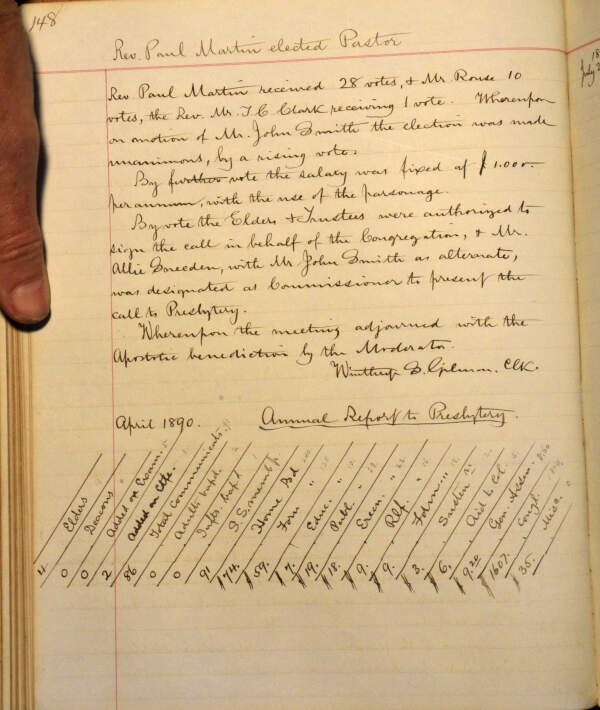 148
Rev. Paul Martin elected Pastor
18
July 2
Rev. Paul Martin received 28 votes, & Mr. Rouse 10
votes, the Rev. Mr. T. C. Clark receiving 1 vote. Whereupon
on motion of Mr. John Smith the election was made
unanimous, by a rising vote.
By further vote the salary was fixed at $1.000.-
per annum, with the use of the parsonage.
By vote the Elders & Trustees were authorized to
sign the call in behalf of the Congregation, & Mr.
Allie Sneeden, with Mr John Smith as alternate,
was designated as Commissioner to present the
call to Presbytery.
Whereupon the meeting adjourned with the
Apostolic benediction by the Moderator.
Winthrop S. Gilman. Clk.
April 1890. Annual Report to Presbytery.
Elders 4
Deacons 0
Added on Exam. 0
Added on Ctfe. 2
Total Communicants 86
Adults bapd. 0
Infts. bap'd 0
S. S. memb'p 91
Home Bd 74.
Forn " 59.
Educ. " 7.
Publ. " 19.
Erecn. " 18.
Relf. " 9.
Fdmn " 9.
Susten 3.
Aid to Col. 6.
Gen. Assm. 9.20
Congl. 1607.
Misc. 35.